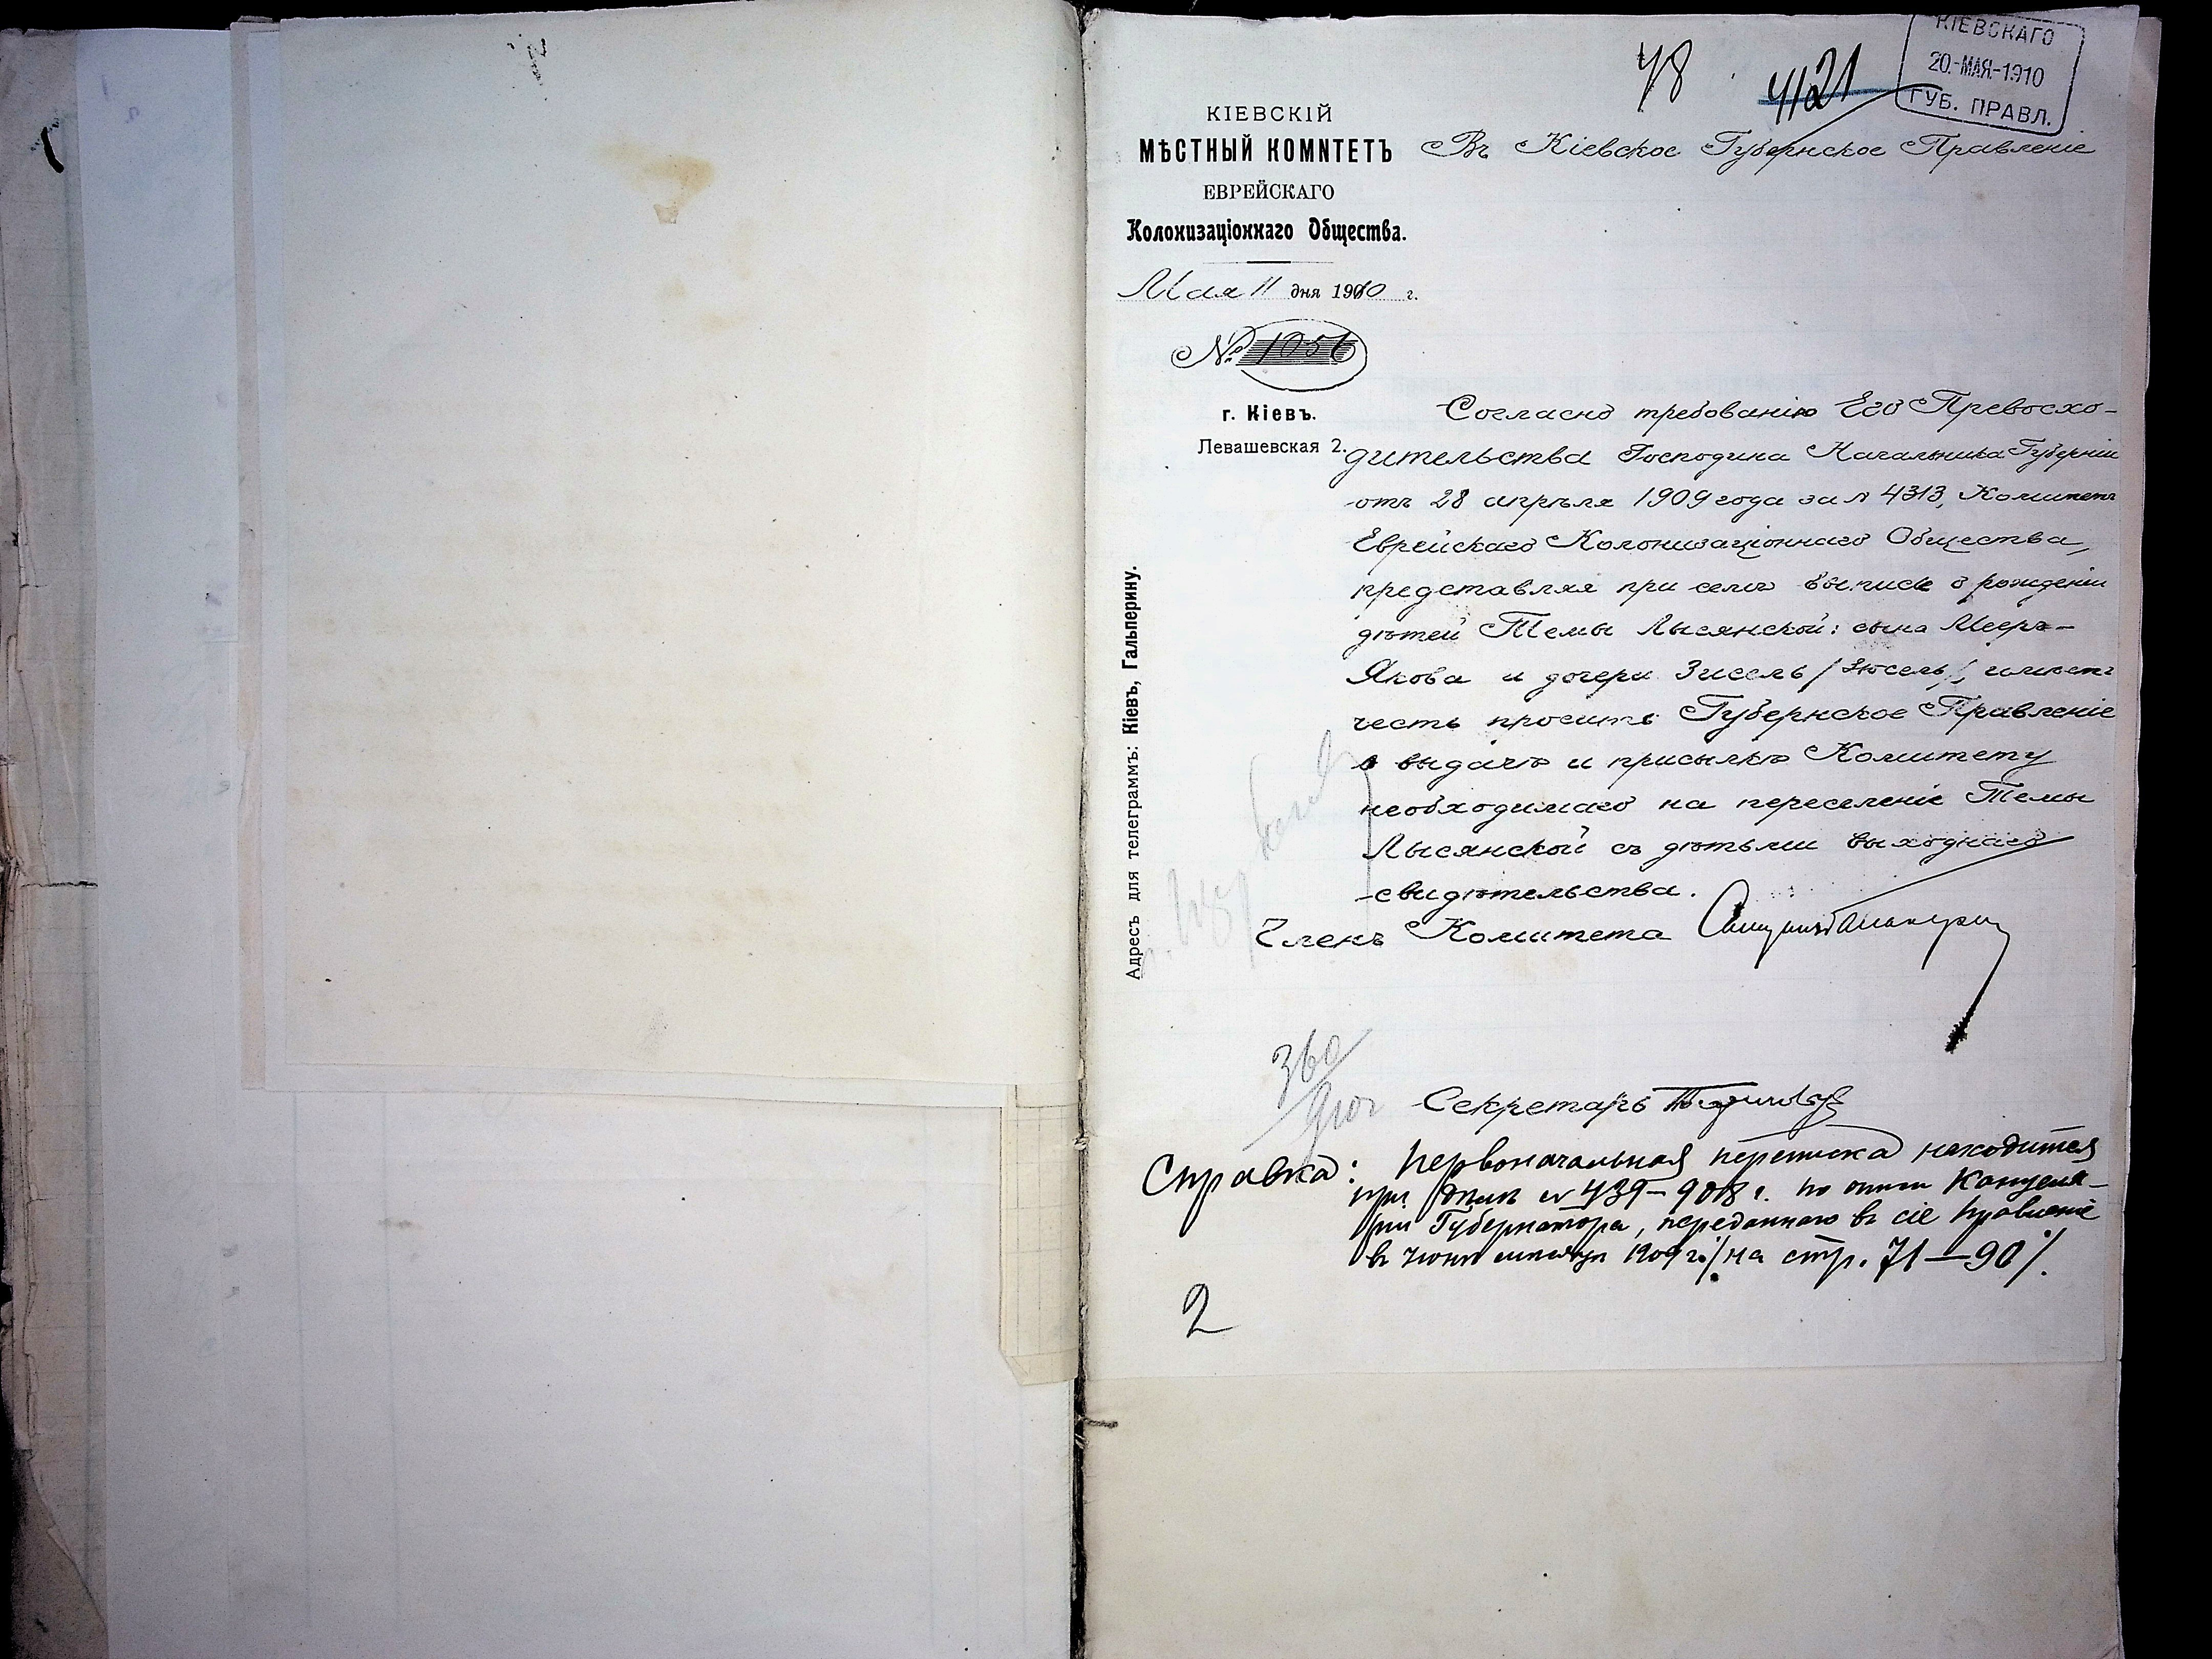 КІЕВСКАГО
20.-МАЯ.-1910
ГУБ. ПРАВЛ.
48
4121
КІЕВСКІЙ
МѢСТНЫЙ КОМИТЕТЪ
ЕВРЕЙСКАГО
Колонизаціоннаго Общества.
Мая 11 дня 1910 г.
№ 1056
г. Кіевъ.
Левашевская 2.
Адресъ для телеграммъ: Кіевъ, Гальперину.
Въ Кіевское Губернское Правленіе
Согласно требованію Его Превосхо-
дительства Господина Начальника Губерніи
отъ 28 апрѣля 1909 года за № 4313, Комитетъ
Еврейскаго Колонизаціоннаго Общества,
представляя при семъ выписи о рожденіи
дѣтей Темы Лысянской: сына Меера-
Якова и дочери Зисель /Зюсель/, имѣетъ
честь просить Губернское Правленіе
о выдачѣ и присылкѣ Комитету
необходимаго на переселеніе Темы
Лысянской съ дѣтьми выходнаго
свидѣтельства.
Членъ Комитета
360
Секретарь
Справка: Первоначальная переписка находится
при дѣлѣ № 439-908 г. по описи Канцеля-
ріи Губернатора, переданнаго въ сіе Правленіе
въ Іюнѣ мѣсяцѣ 1909 г. /на стр. 71-90/.
2